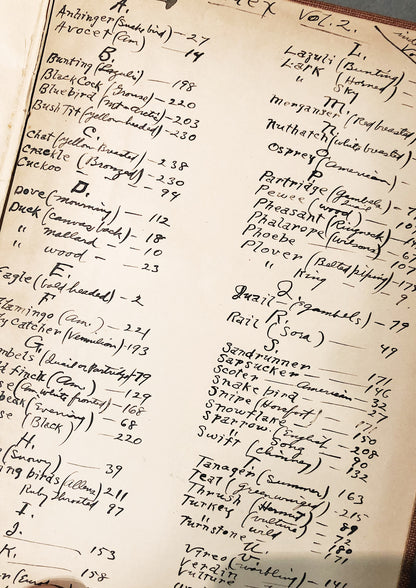 Index Vol. 2.
A.
Anhinger (Snake bird) - 27
Avocet (Am) 14
B.
Bunting (Lazuli) - 198
Black Cock (Grouse) - 220
Bluebird - 203
Bush Tit (yellow headed) - 230
C.
Chat (yellow Breasted) - 238
Crackle (Bronzed) - 230
Cuckoo - " - 94
D.
Dove (mourning) - 112
Duck (canvas back) - 18
" mallard - 10
" wood - 23
E.
Eagle (bald headed) - 2
F
Flamingo (Am.) - 221
Catcher (Vermilion) 193
G
79
Finch (Am.) - 129
(Am white fronted) - 168
(Evening) - 68
(Black) 220
H.
(Snowy) - 39
ing birds (Allens) 211
Ruby throated 97
I.
J. 153
K. 158
L.
Lazuli (Bunting)
Lark (Horned)
" Sky
M.
Merganser (Red breasted)
N
Nuthatch (white breasted)
O
Osprey (American)
P
Partridge (Gambels)
Pewee (wood)
Pheasant (Ringneck)
Phalarope (Wilsons)
Phoebe
Plover (Belted piping)
" King
Q
Quail (gambels) - 79
R.
Rail (Sora) 49
S.
Sandrunner 171
Sapsucker 146
Scoter American - 32
Snake bird 27
Snipe
Snowflake 150
Sparrow (English) - 208
" Song 90
Swift (chimney) 132
T
Tanager (Summer) 163
Teal (Greenwinged) - 215
Thrush (Hermit) 89
Turkey (Vulture) 72
" wild 180
Turnstone 171
U
V
Vireo (warbling)
Verdin
Vulture